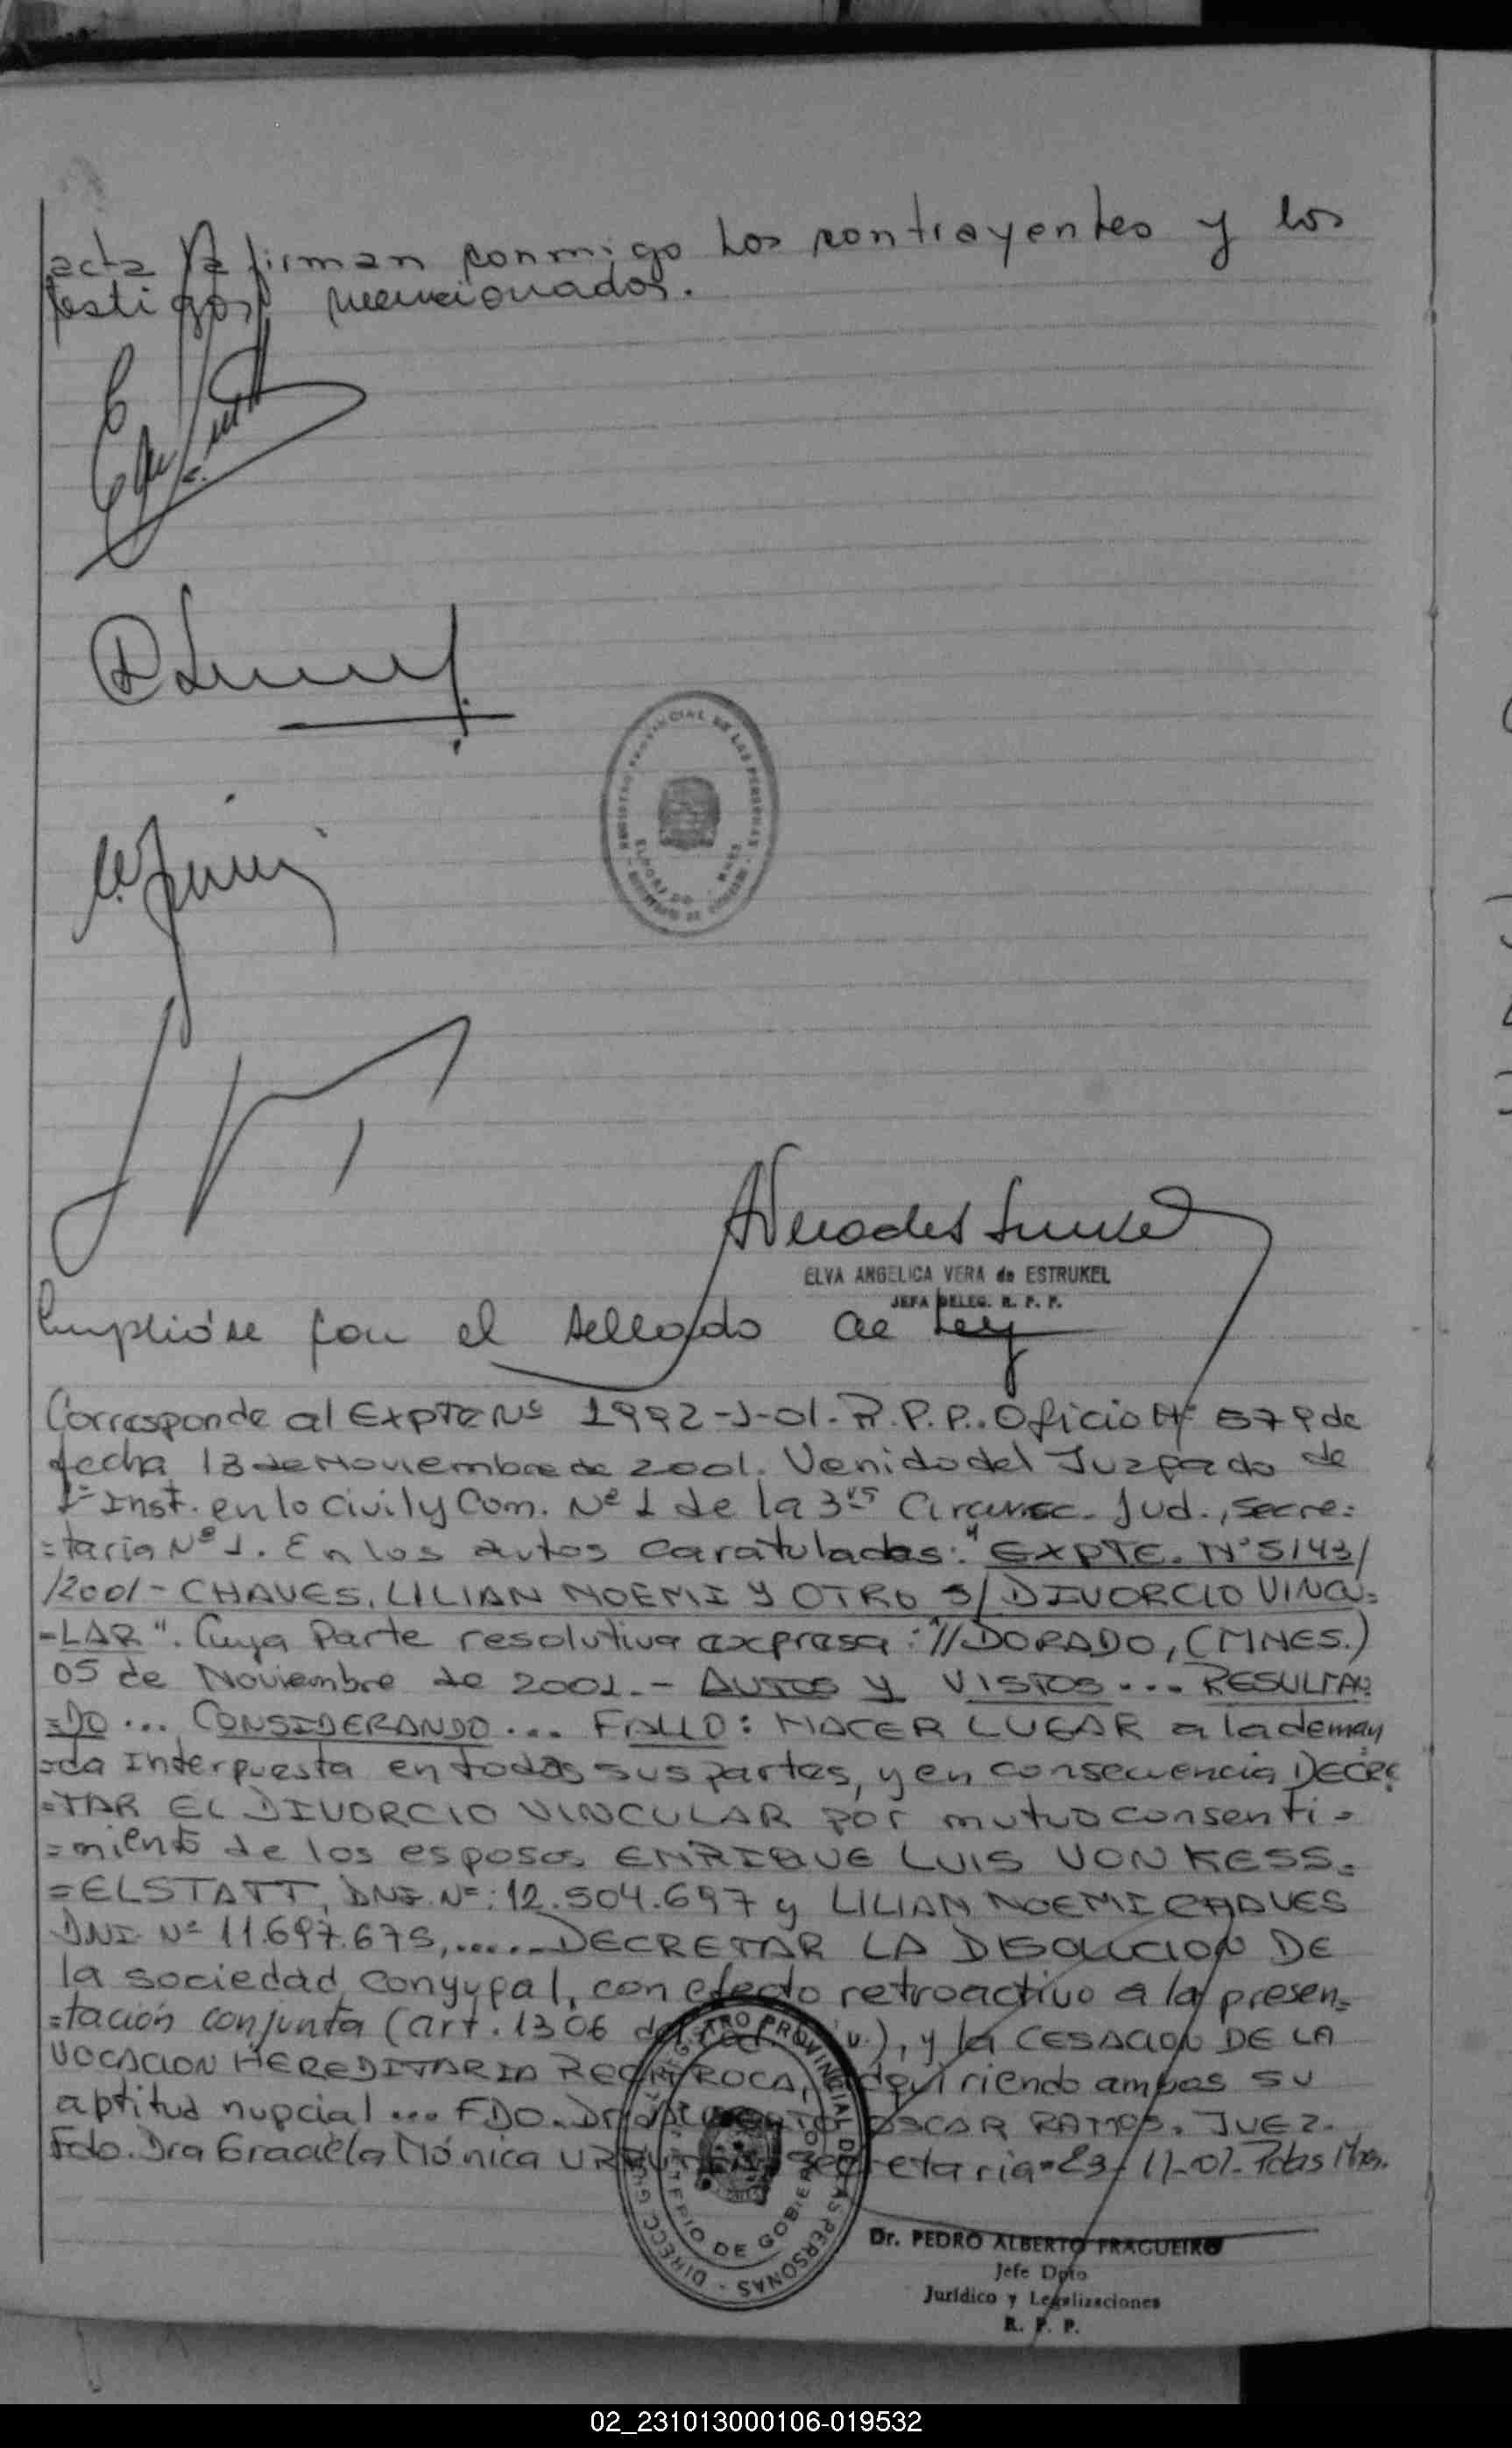 acta la firman conmigo los contrayentes y los
testigos mencionados.
REGISTRO PROVINCIAL DE LAS PERSONAS
ELDORADO - MNES
A Vera de Estrukel
ELVA ANGELICA VERA de ESTRUKEL
JEFA DELEG. R. P. P.
Cumplióse con el sellado de Ley
Corresponde al Expte Nº 1992-J-01-R.P.P.. Oficio Nº 579 de
fecha 13 de Noviembre de 2001. Venido del Juzgado de
1ª Inst. en lo Civil y Com. Nº 1 de la 3ra Circunsc. Jud., Secre=
=taria Nº 1. En los autos caratulados: "EXPTE. Nº 5143/
/2001- CHAVES, LILIAN NOEMI Y OTRO S/ DIVORCIO VINCU=
=LAR". Cuya Parte resolutiva expresa: "//DORADO, (MNES.)
05 de Noviembre de 2001.- AUTOS Y VISTOS... RESULTAN
=DO... CONSIDERANDO... FALLO: HACER LUGAR a la deman
=da Interpuesta en todas sus partes, y en consecuencia DECRE
=TAR EL DIVORCIO VINCULAR por mutuo consenti=
=miento de los esposos ENRIQUE LUIS VON KESS=
=ELSTATT, DNI. Nº: 12.504.697 y LILIAN NOEMI CHAVES
DNI Nº 11.697.675,......DECRETAR LA DISOLUCION DE
la sociedad conyugal, con efecto retroactivo a la presen=
=tación conjunta (art. 1306 del Cód. Civ.), y la CESACION DE LA
VOCACION HEREDITARIA RECIPROCA, adquiriendo ambos su
aptitud nupcial... FDO. Dr. OSCAR RAMOS. JUEZ.
Fdo. Dra Graciela Mónica Secretaria=23-11-01- Pdas Mnes.
DIRECC. GRAL. REGISTRO PROVINCIAL DE LAS PERSONAS
MINISTERIO DE GOBIERNO
Dr. PEDRO ALBERTO FRAGUEIRO
Jefe Dpto
Jurídico y Legalizaciones
R. P. P.
02_231013000106-019532